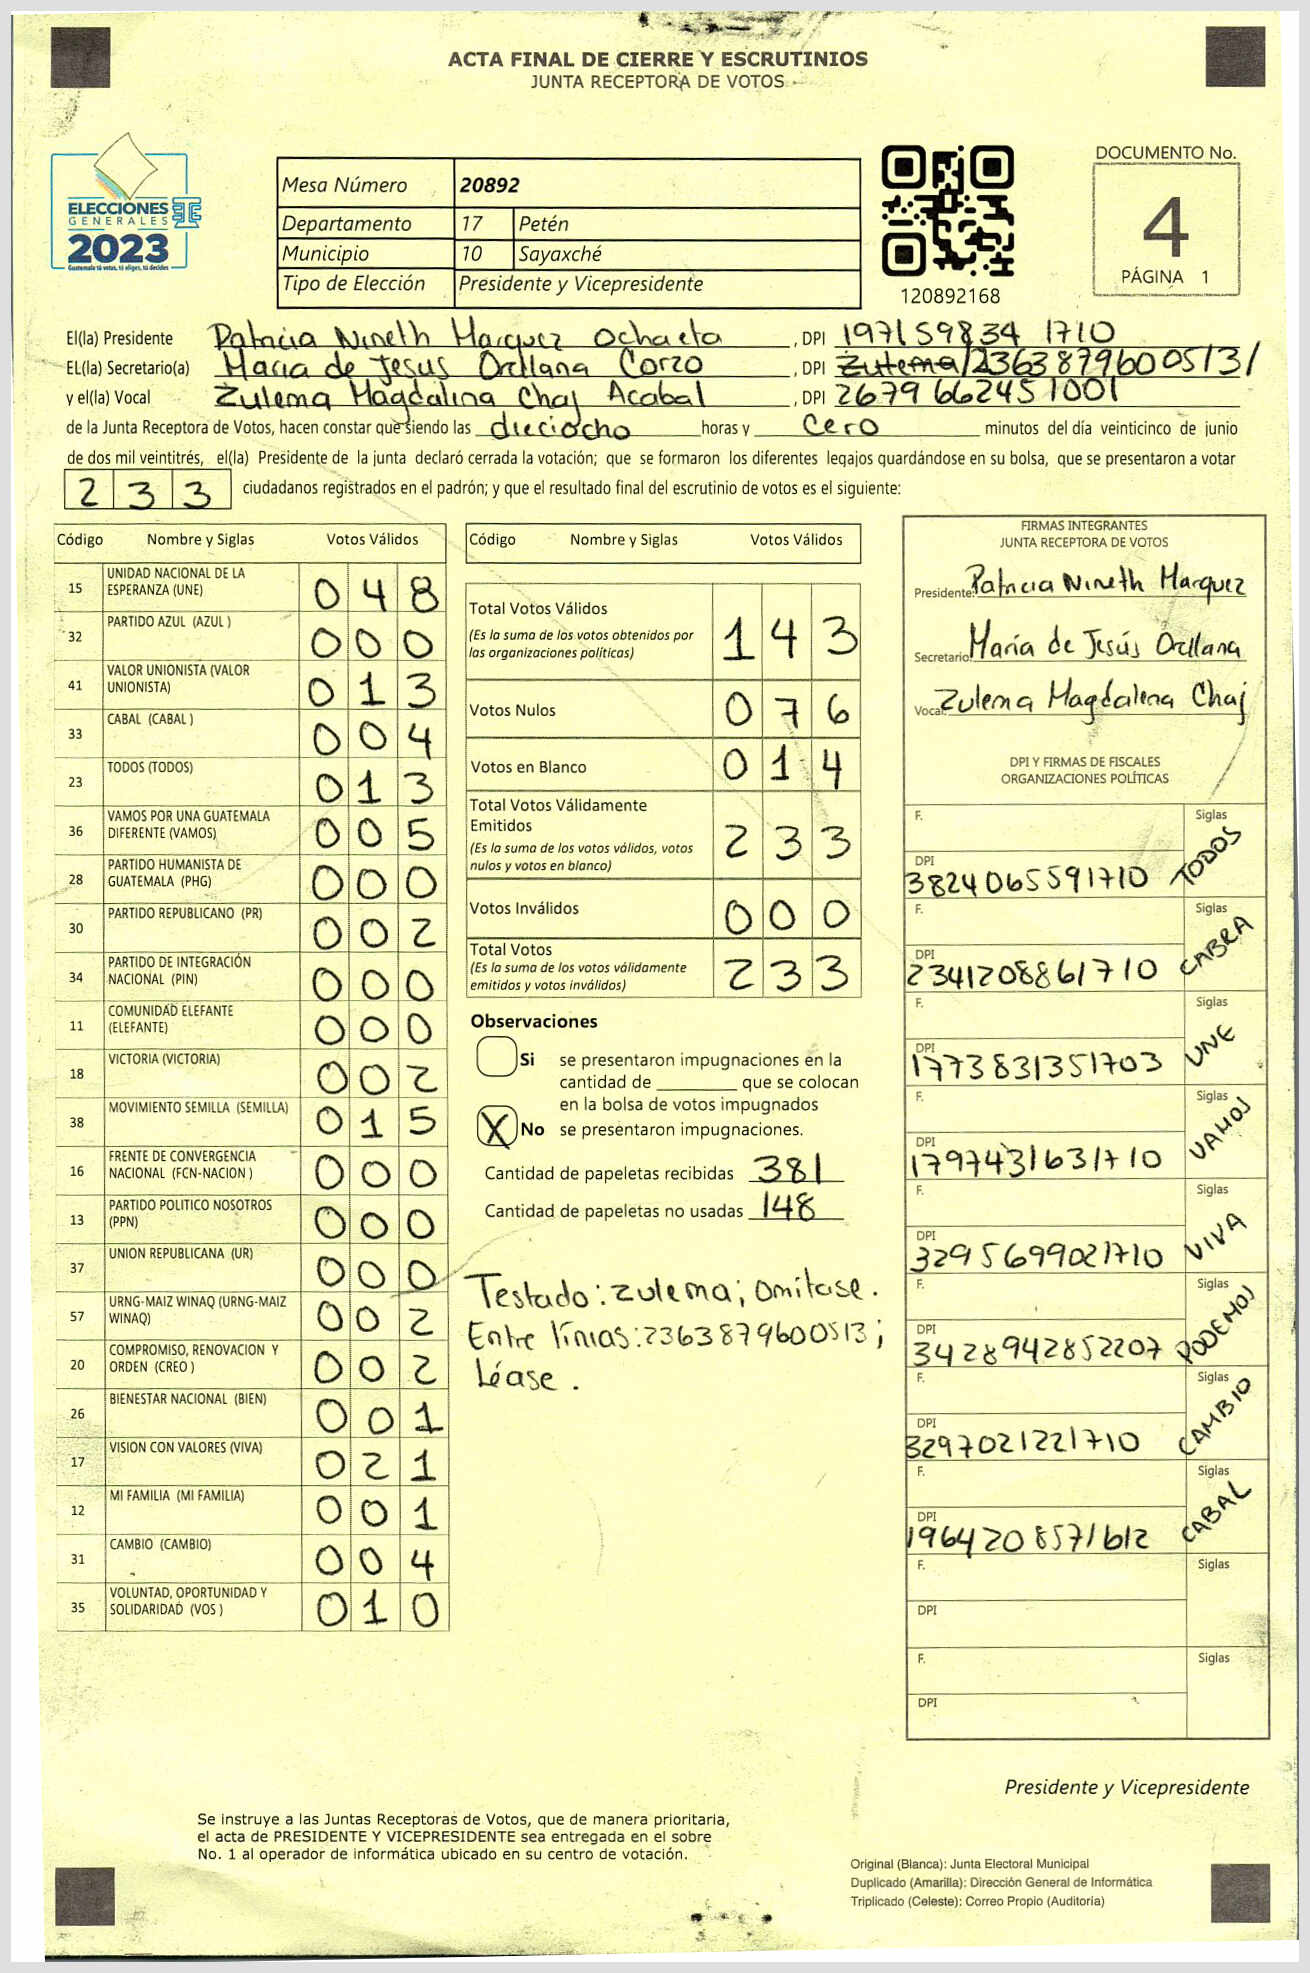 ACTA FINAL DE CIERRE Y ESCRUTINIOS
JUNTA RECEPTORA DE VOTOS
ELECCIONES
GENERALES
2023
Guatemala tú votas, tú eliges, tú decides
Mesa Número 20892
Departamento 17 Petén
Municipio 10 Sayaxché
Tipo de Elección Presidente y Vicepresidente
120892168
DOCUMENTO No.
4
PÁGINA 1
El(la) Presidente Patricia Nineth Marquez Ochaeta, DPI 197159834 1710
EL(la) Secretario(a) Maria de Jesus Orellana Corzo, DPI Zulema/2363879600513/
y el(la) Vocal Zulema Magdalina Chaj Acabal, DPI 2679 66245 1001
de la Junta Receptora de Votos, hacen constar que siendo las dieciocho horas y cero minutos del día veinticinco de junio
de dos mil veintitrés, el(la) Presidente de la junta declaró cerrada la votación; que se formaron los diferentes legajos quardándose en su bolsa, que se presentaron a votar
233 ciudadanos registrados en el padrón; y que el resultado final del escrutinio de votos es el siguiente:
Código Nombre y Siglas Votos Válidos
15 UNIDAD NACIONAL DE LA ESPERANZA (UNE) 048
32 PARTIDO AZUL (AZUL ) 000
41 VALOR UNIONISTA (VALOR UNIONISTA) 013
33 CABAL (CABAL ) 004
23 TODOS (TODOS) 013
36 VAMOS POR UNA GUATEMALA DIFERENTE (VAMOS) 005
28 PARTIDO HUMANISTA DE GUATEMALA (PHG) 000
30 PARTIDO REPUBLICANO (PR) 002
34 PARTIDO DE INTEGRACIÓN NACIONAL (PIN) 000
11 COMUNIDAD ELEFANTE (ELEFANTE) 000
18 VICTORIA (VICTORIA) 002
38 MOVIMIENTO SEMILLA (SEMILLA) 015
16 FRENTE DE CONVERGENCIA NACIONAL (FCN-NACION ) 000
13 PARTIDO POLITICO NOSOTROS (PPN) 000
37 UNION REPUBLICANA (UR) 000
57 URNG-MAIZ WINAQ (URNG-MAIZ WINAQ) 002
20 COMPROMISO, RENOVACION Y ORDEN (CREO ) 002
26 BIENESTAR NACIONAL (BIEN) 001
17 VISION CON VALORES (VIVA) 021
12 MI FAMILIA (MI FAMILIA) 001
31 CAMBIO (CAMBIO) 004
35 VOLUNTAD, OPORTUNIDAD Y SOLIDARIDAD (VOS ) 010
Código Nombre y Siglas Votos Válidos
Total Votos Válidos 143
(Es la suma de los votos obtenidos por
las organizaciones políticas)
Votos Nulos 076
Votos en Blanco 014
Total Votos Válidamente
Emitidos 233
(Es la suma de los votos válidos, votos
nulos y votos en blanco)
Votos Inválidos 000
Total Votos 233
(Es la suma de los votos válidamente
emitidos y votos inválidos)
Observaciones
Si se presentaron impugnaciones en la
cantidad de ________ que se colocan
en la bolsa de votos impugnados
X No se presentaron impugnaciones.
Cantidad de papeletas recibidas 381
Cantidad de papeletas no usadas 148
Testado: Zulema; omitase.
Entre línias: 2363879600513;
Léase.
FIRMAS INTEGRANTES
JUNTA RECEPTORA DE VOTOS
Presidente: Patricia Nineth Marquez
Secretario: María de Jesús Orellana
Vocal: Zulema Magdalena Chaj
DPI Y FIRMAS DE FISCALES
ORGANIZACIONES POLÍTICAS
F. Siglas
DPI 3824065591710 TODOS
F. Siglas
DPI 2341208861710 CABRA
F. Siglas
DPI 1773831351703 UNE
F. Siglas
DPI 1797431631710 VAMOS
F. Siglas
DPI 3295699021710 VIVA
F. Siglas
DPI 3428942852207 PODEMOS
F. Siglas
DPI 3297021221710 CAMBIO
F. Siglas
DPI 1964208571612 CABAL
F. Siglas
DPI
F. Siglas
DPI
Presidente y Vicepresidente
Se instruye a las Juntas Receptoras de Votos, que de manera prioritaria,
el acta de PRESIDENTE Y VICEPRESIDENTE sea entregada en el sobre
No. 1 al operador de informática ubicado en su centro de votación.
Original (Blanca): Junta Electoral Municipal
Duplicado (Amarilla): Dirección General de Informática
Triplicado (Celeste): Correo Propio (Auditoría)